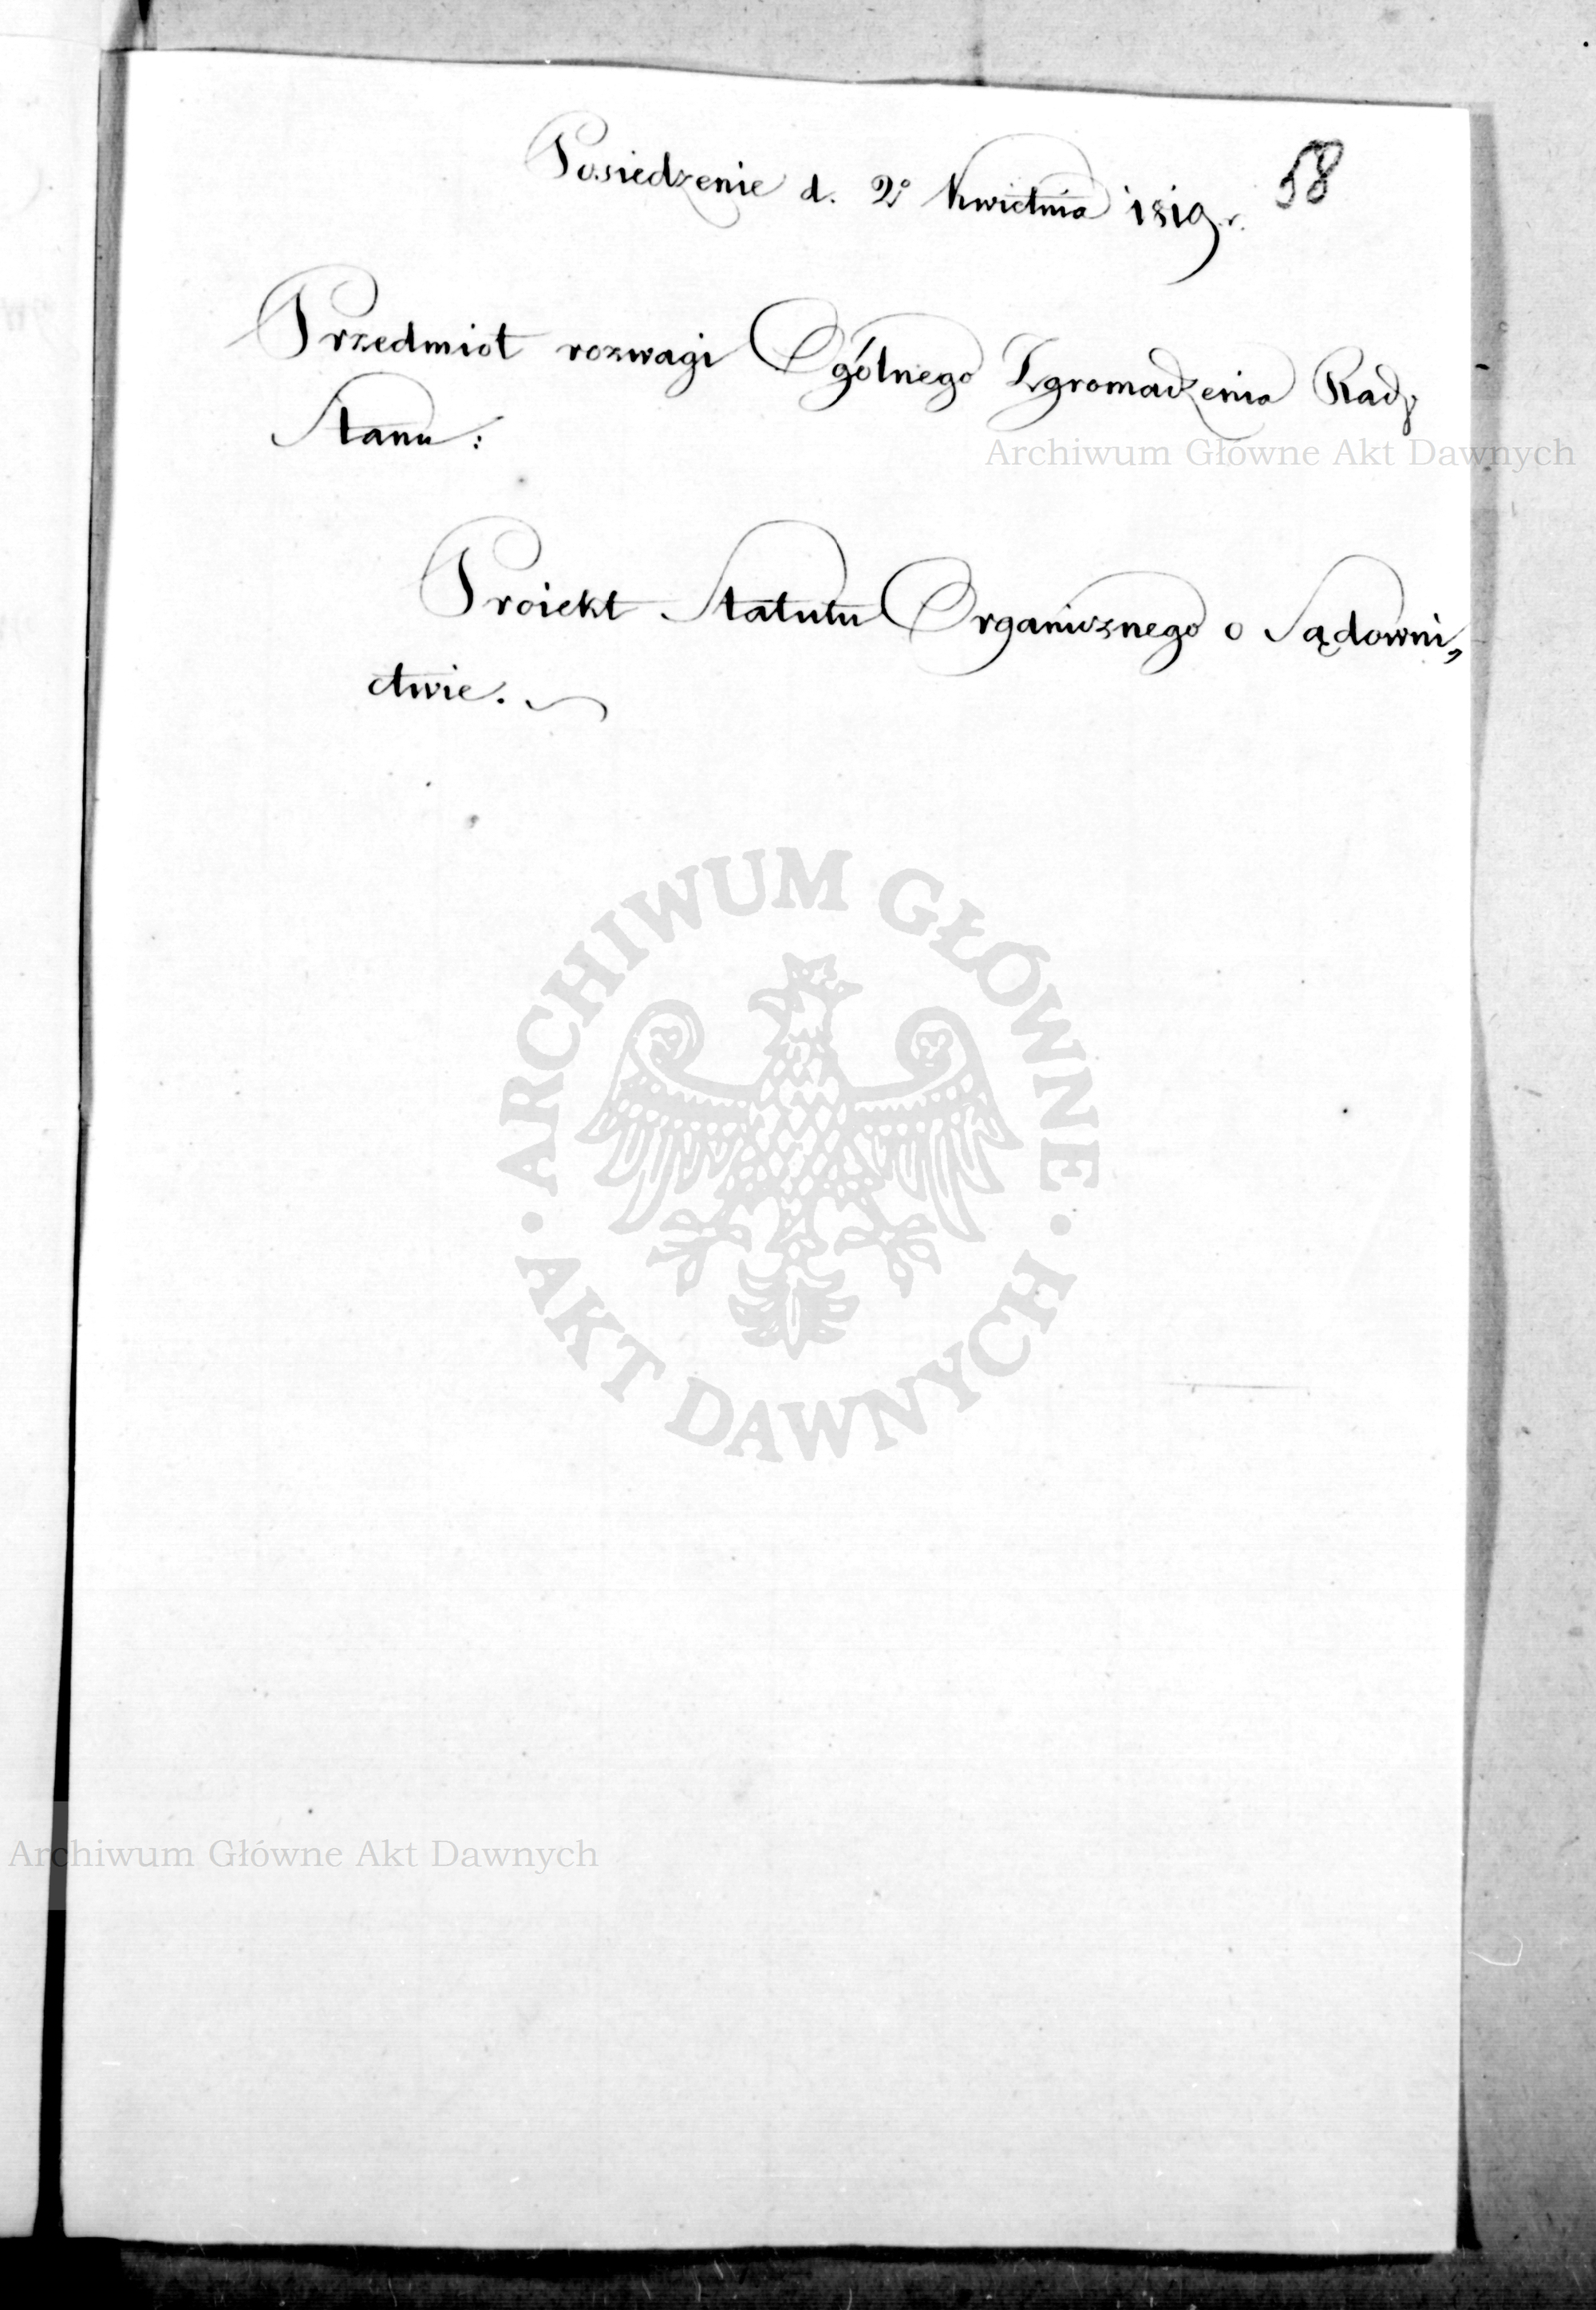 58
Posiedzenie d. 2º Kwietnia 1819 r.
Przedmiot rozwagi Ogólnego Zgromadzenia Rady
Stanu:
Archiwum Główne Akt Dawnych
Proiekt Statutu Organicznego o Sądowni„
ctwie.
ARCHIWUM GŁÓWNE
AKT DAWNYCH
Archiwum Główne Akt Dawnych